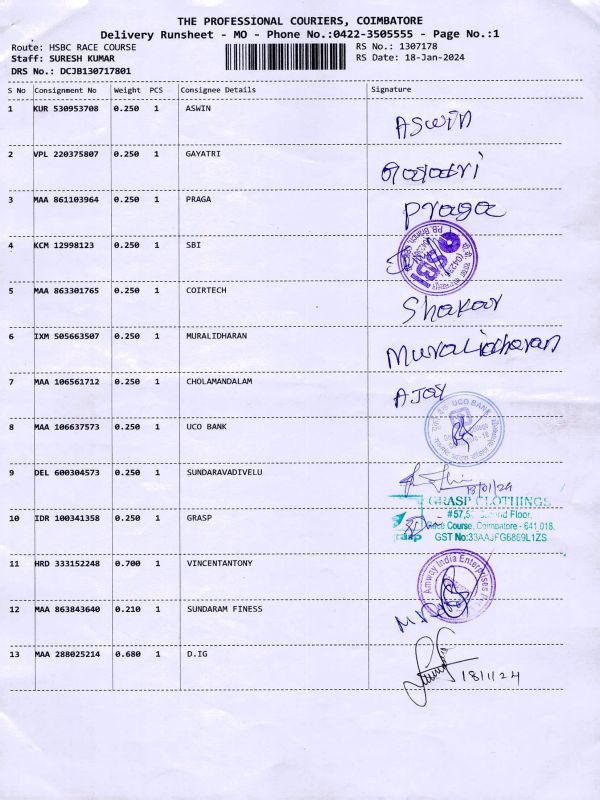 THE PROFESSIONAL COURIERS, COIMBATORE
Delivery Runsheet - MO - Phone No.:0422-3505555 - Page No.:1
Route: HSBC RACE COURSE
RS No.: 1307178
Staff: SURESH KUMAR
RS Date: 18-Jan-2024
DRS No.: DCJB130717801
S No Consignment No Weight PCS Consignee Details Signature
1 KUR 530953708 0.250 1 ASWIN Aswin
2 VPL 220375807 0.250 1 GAYATRI
3 MAA 861103964 0.250 1 PRAGA Praga
4 KCM 12998123 0.250 1 SBI SBI
5 MAA 863301765 0.250 1 COIRTECH Shakar
6 IXM 505663507 0.250 1 MURALIDHARAN Muralidharan
7 MAA 106561712 0.250 1 CHOLAMANDALAM AJAY
8 MAA 106637573 1 UCO BANK UCO BANK
9 DEL 600304573 0.250 1 SUNDARAVADIVELU 18/01/24
GRASP CLOTHINGS
Floor,
10 IDR 100341358 0.250 1 GRASP Race Course, Coimbatore - 641 018.
GST No:33AAJFG6869L1ZS
11 HRD 333152248 0.700 1 VINCENTANTONY Amway India Enterprises
12 MAA 863843640 0.210 1 SUNDARAM FINESS
13 MAA 288025214 0.680 1 D.IG 18/1/24